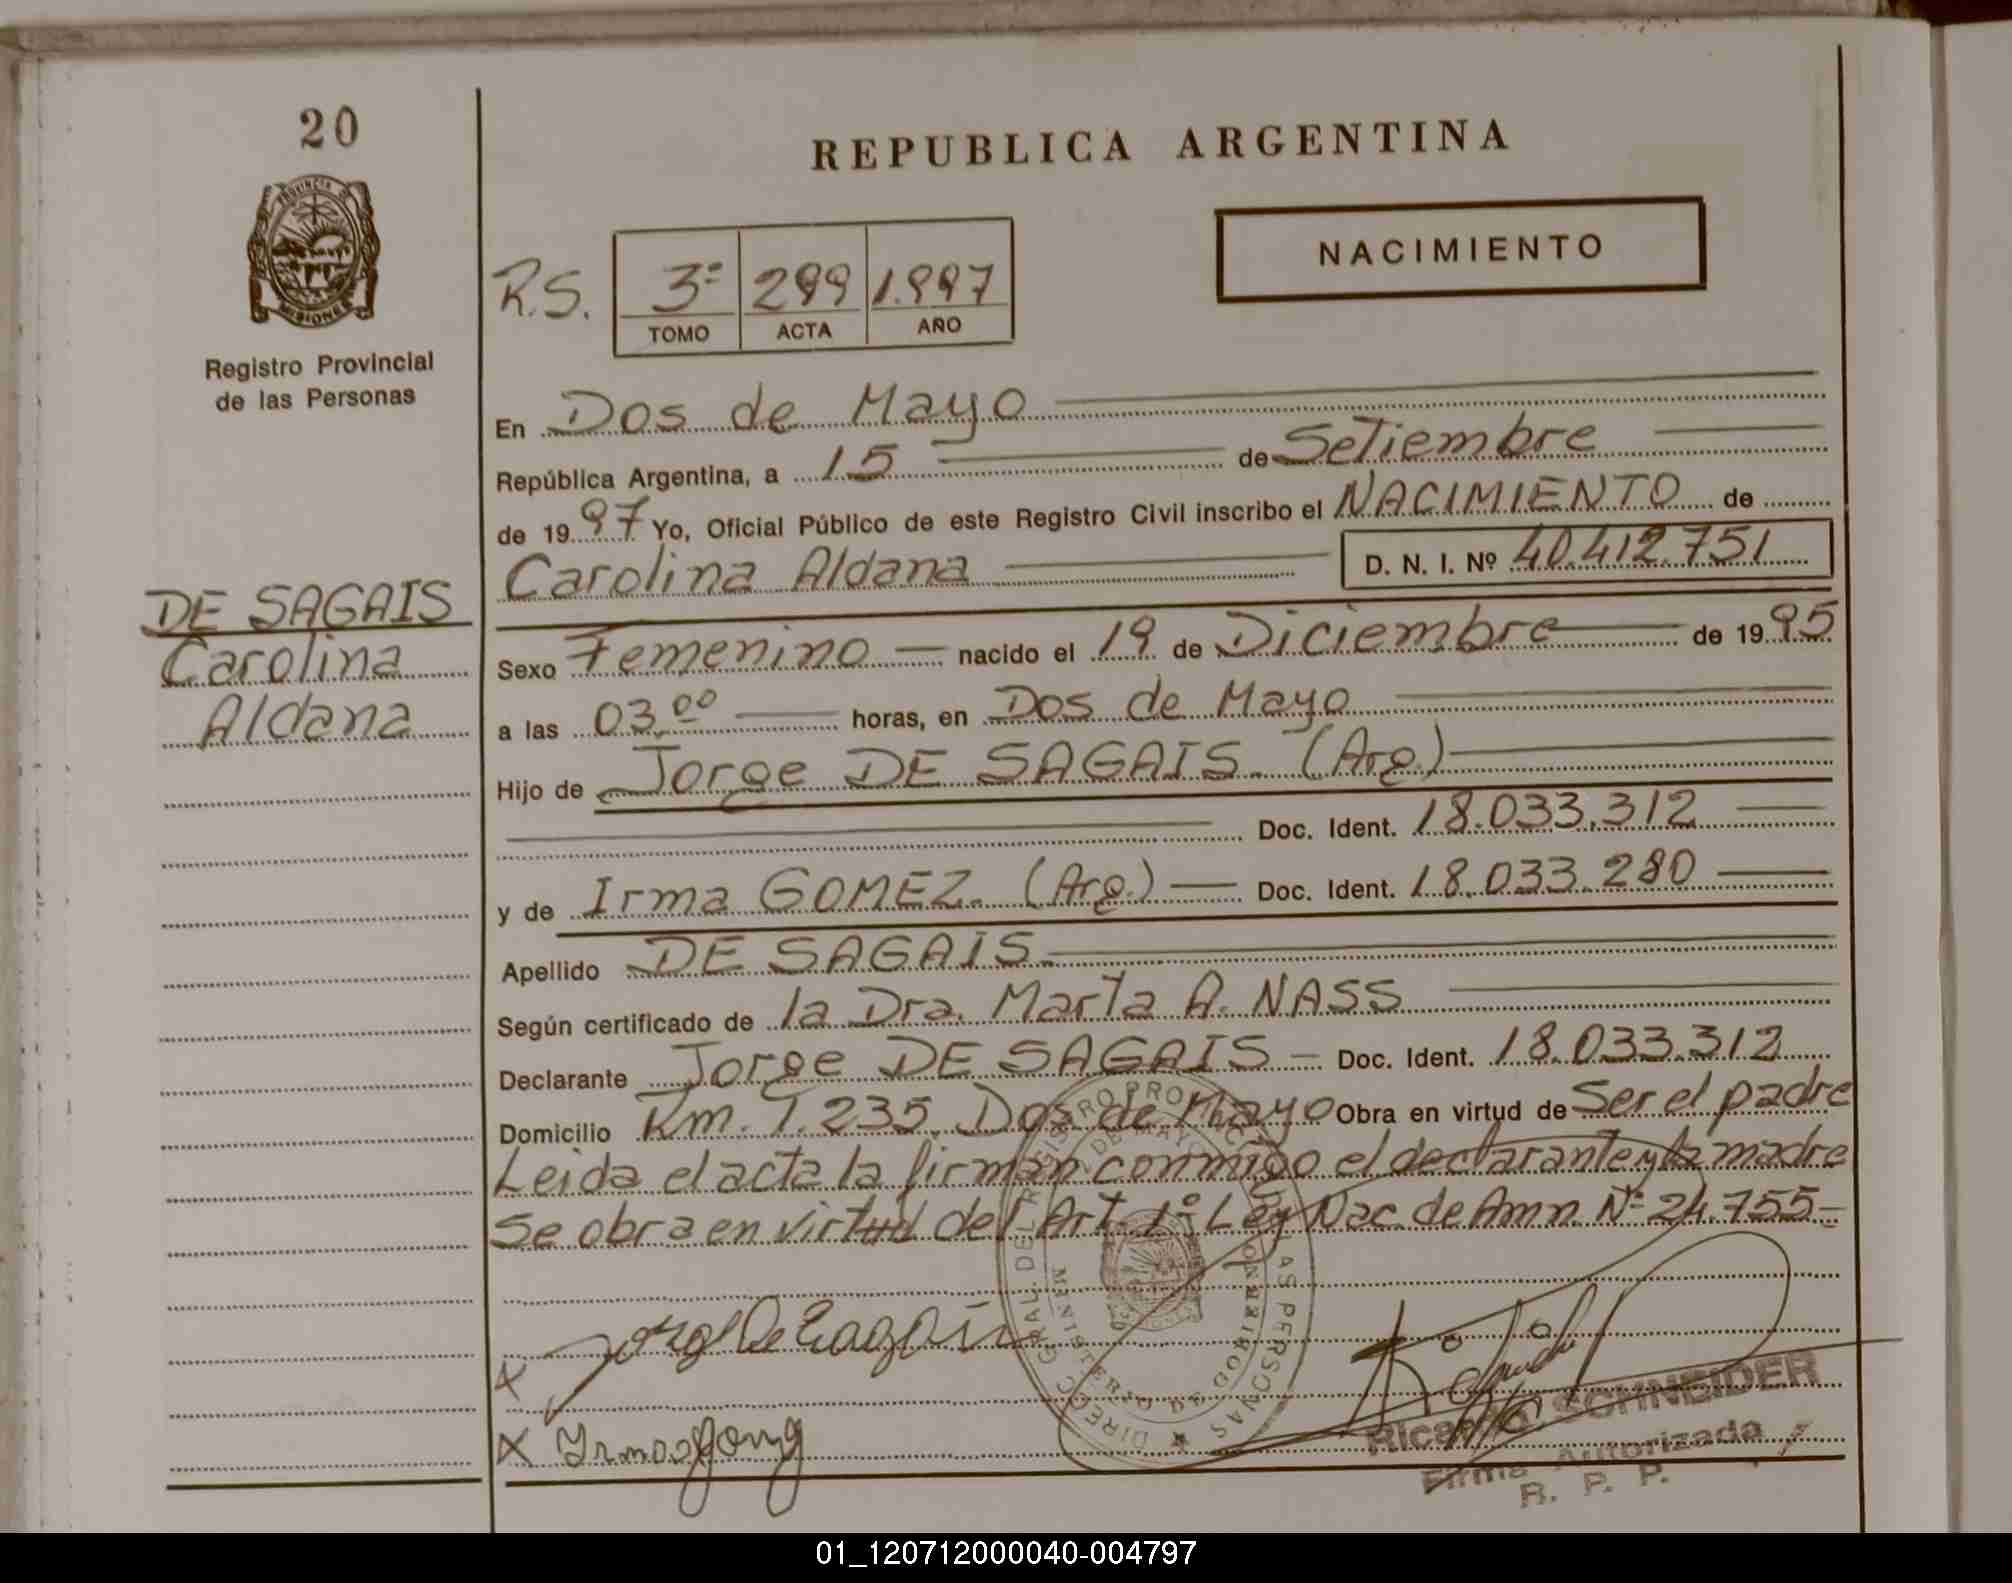 20
REPUBLICA ARGENTINA
PROVINCIA DE MISIONES
Registro Provincial
de las Personas
NACIMIENTO
R.S. 3º 299 1.997
TOMO ACTA AÑO
En Dos de Mayo
República Argentina, a 15 de Setiembre
de 1997 Yo, Oficial Público de este Registro Civil inscribo el NACIMIENTO de
Carolina Aldana D. N. I. Nº 40.412.751
DE SAGAIS
Carolina
Aldana
Sexo Femenino nacido el 19 de Diciembre de 1995
a las 03.00 horas, en Dos de Mayo
Hijo de Jorge DE SAGAIS. (Arg.)
Doc. Ident. 18.033.312
y de Irma GOMEZ. (Arg.) Doc. Ident. 18.033.280
Apellido DE SAGAIS
Según certificado de la Dra. Marta A. NASS
Declarante Jorge DE SAGAIS Doc. Ident. 18.033.312
Domicilio Km. 1.235. Dos de Mayo Obra en virtud de Ser el padre
Leida el acta la firman conmigo el declarante y la madre
Se obra en virtud del Art. 1º Ley Nac. de Amn. Nº 24.755
DIREC. GRAL. DEL REGISTRO PROVINCIAL DE LAS PERSONAS
MINISTERIO DE GOBIERNO
Ricardo SCHNEIDER
Firma Autorizada
R. P. P.
01_120712000040-004797